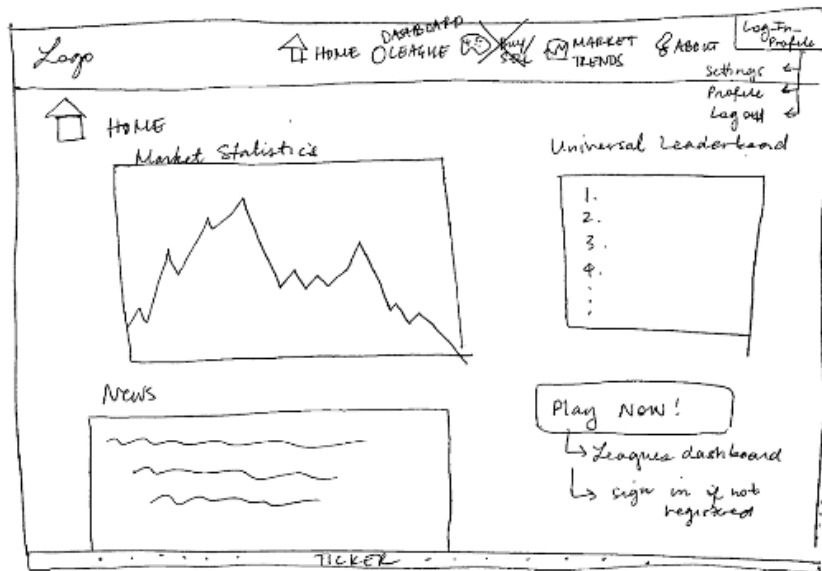 Logo
HOME
DASHBOARD
LEAGUE
Buy
Sell
MARKET
TRENDS
ABOUT
Log-In-
Profile
Settings
Profile
Log out
HOME
Market Statistics
Universal Leaderboard
1.
2.
3.
4.
News
Play Now!
Leagues dashboard
sign in if not
registered
TICKER